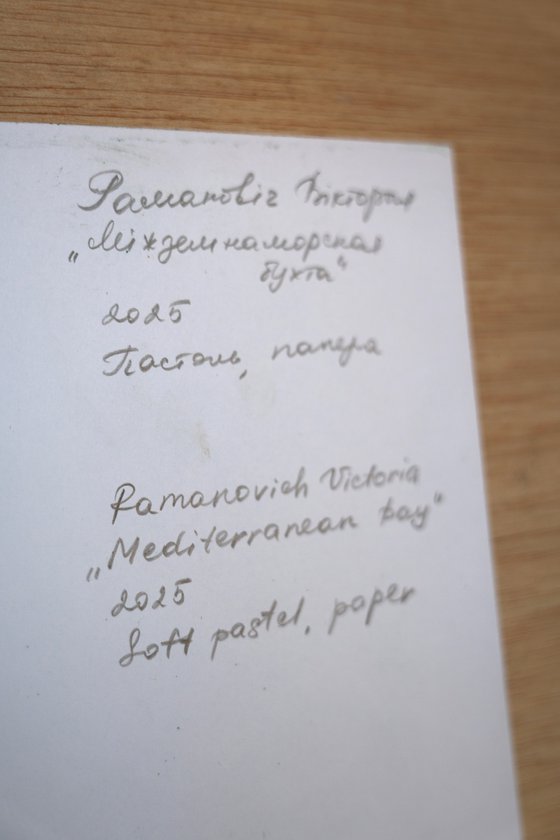 Рамановіч Вікторыя
„Міжземнаморская
бухта“
2025
Пастэль, папера
Ramanovich Victoria
„Mediterranean bay“
2025
Soft pastel, paper